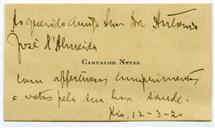 Ao querido Amigo Snr Dr Antonio
José d'Almeida
CARVALHO NEVES
com affectuosos cumprimentos
e votos pela sua boa saude.
Rio, 12-3-20